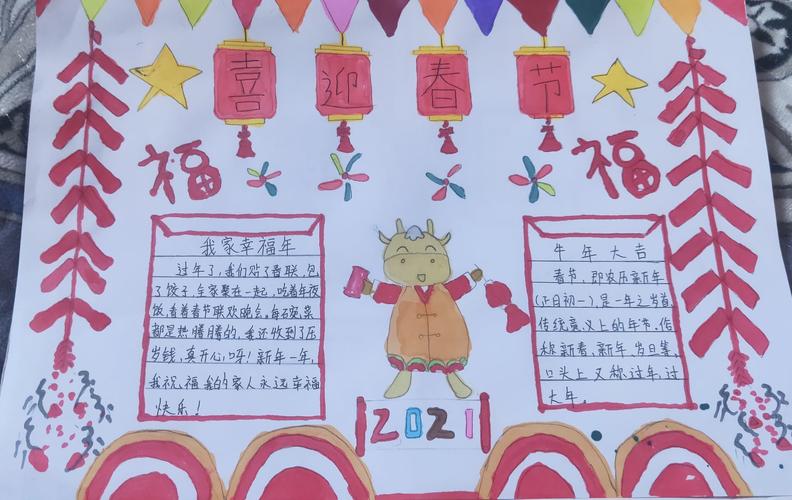 喜迎春节
福
福
我家幸福年
过年了，我们贴了春联，包
了饺子，全家聚在一起，吃着年夜
饭，看着春节联欢晚会。每个菜
都是热腾腾的，我还收到了压
岁钱，真开心呀！新年一年，
我祝福我的家人永远幸福
快乐！
牛年大吉
春节，即农历新年
(正月初一)，是一年之岁首
传统意义上的年节。俗
称新春、新年、岁旦等，
口头上又称过年，过
大年。
2021